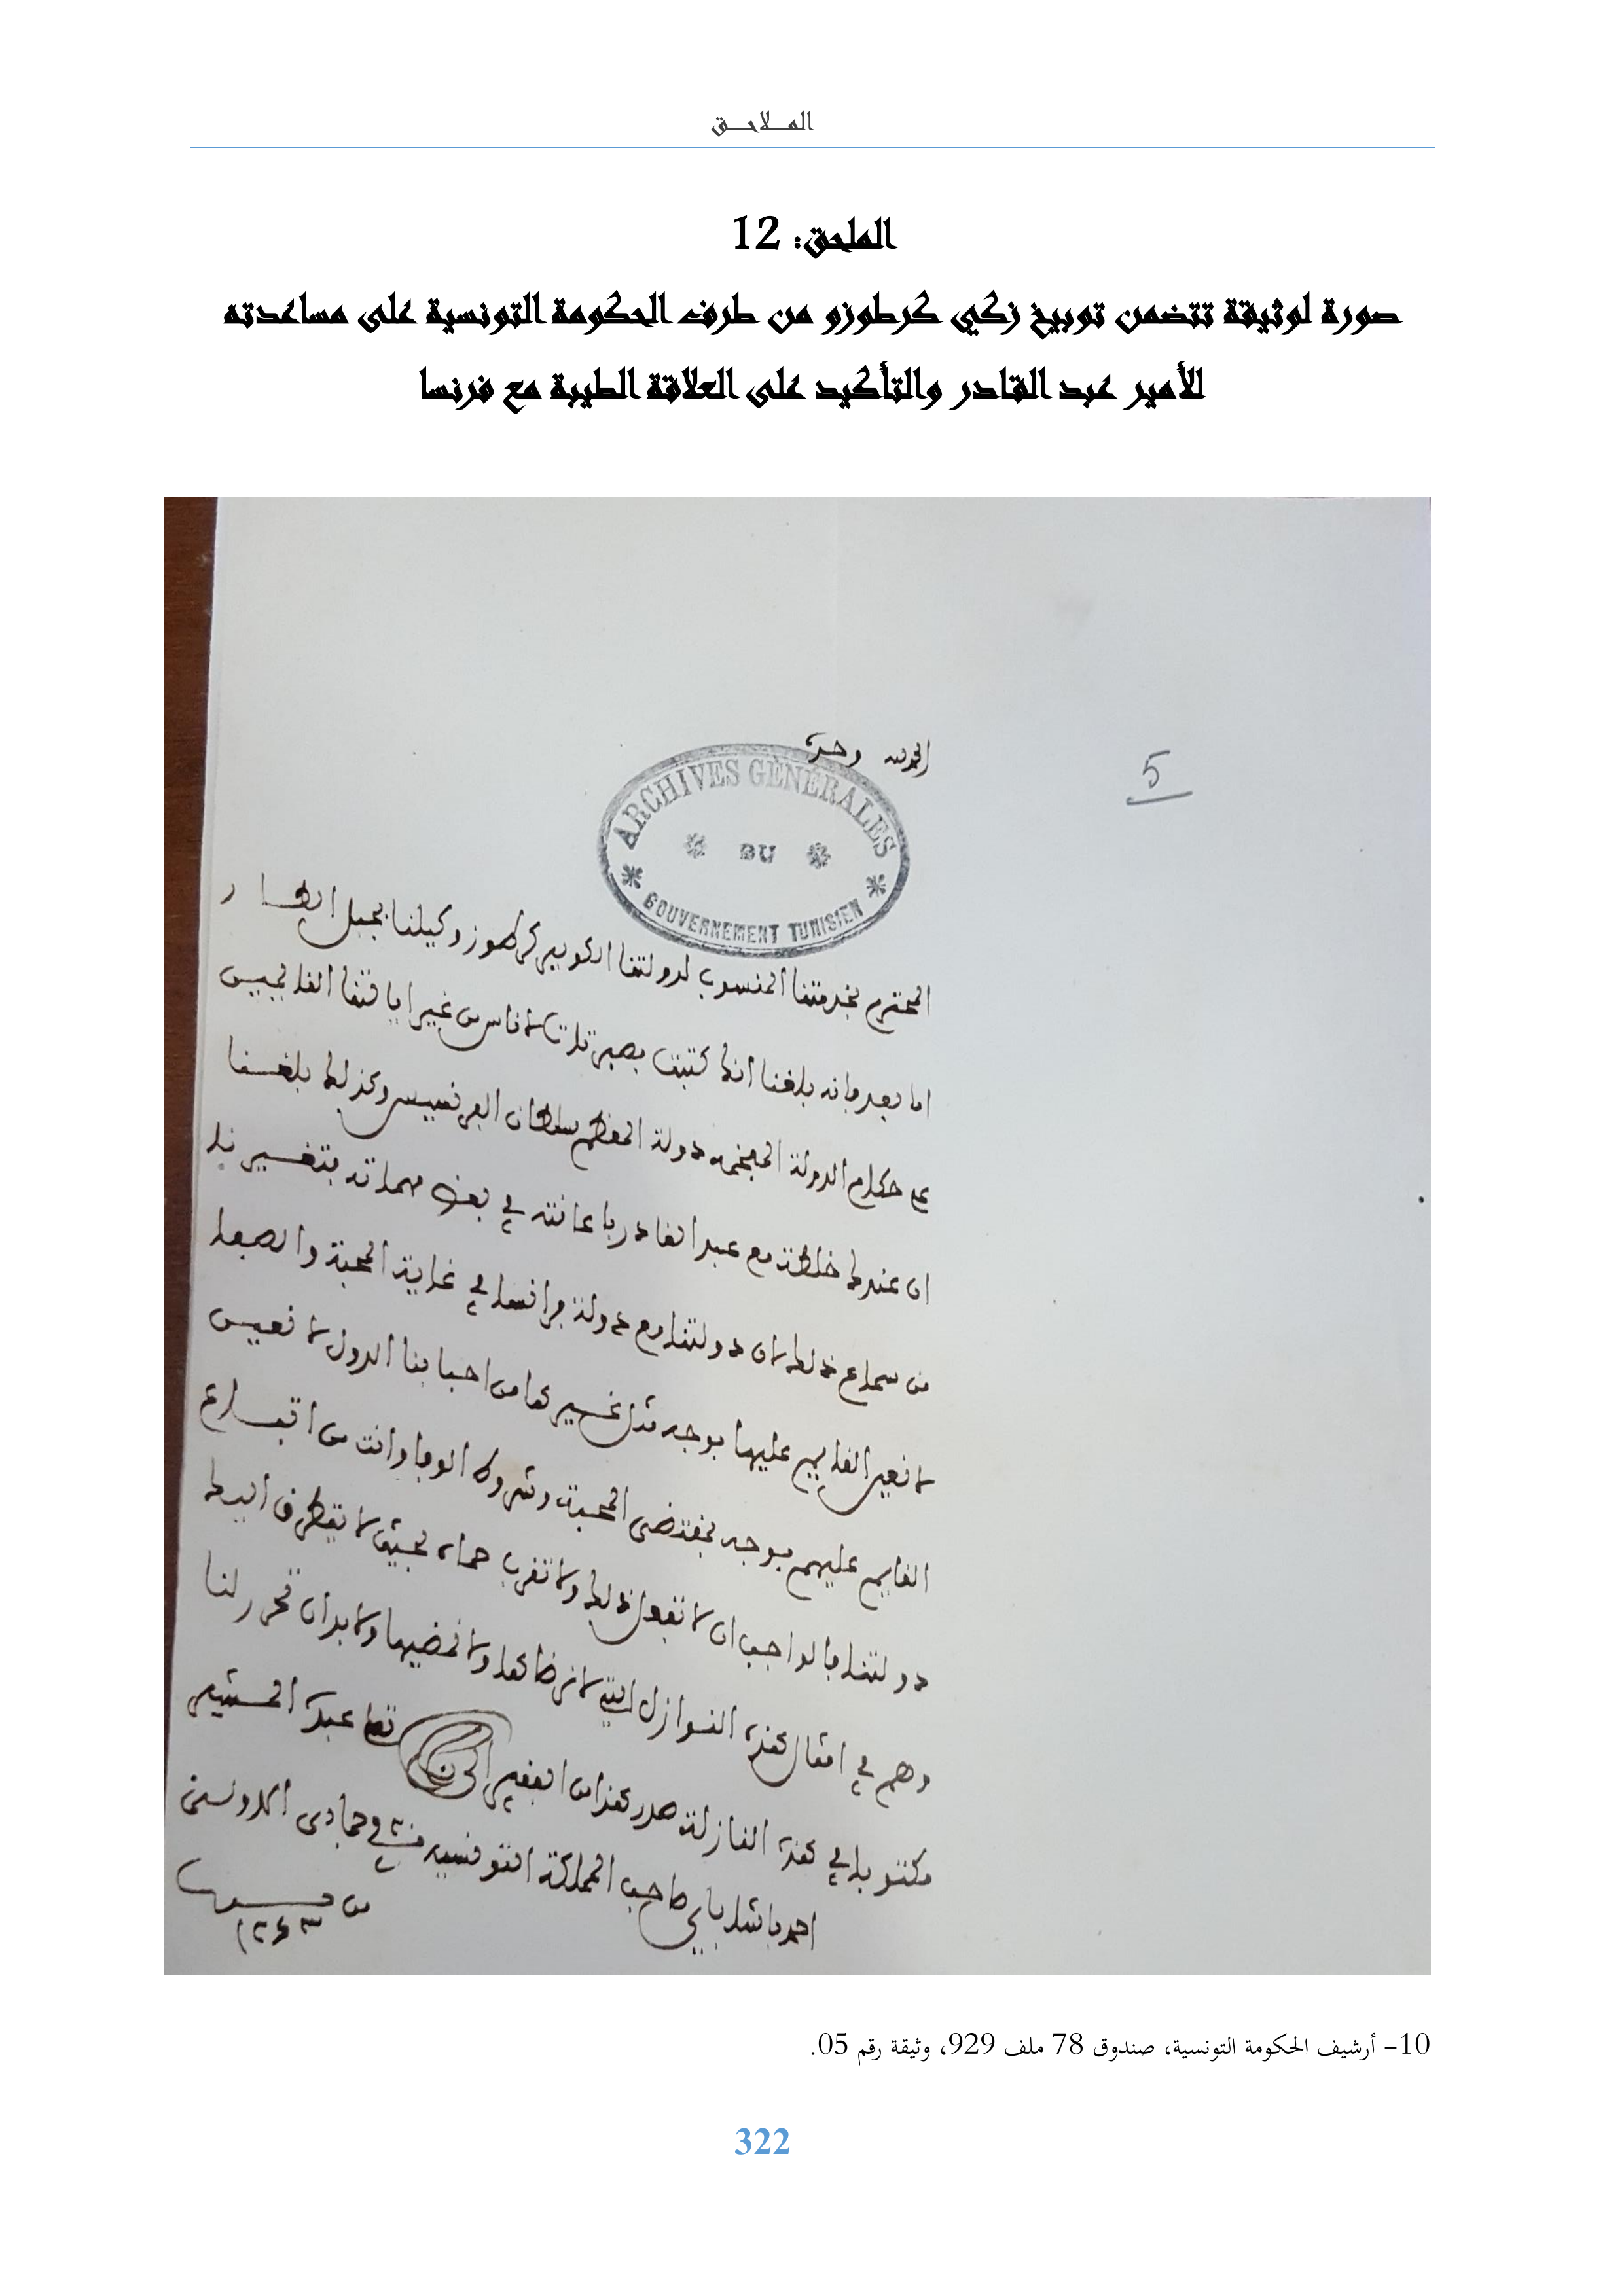 الملاحق
الملحق: 12
صورة لوثيقة تتضمن توبيخ زكي كرطوزو من طرف الحكومة التونسية على مساعدته
للأمير عبد القادر والتأكيد على العلاقة الطيبة مع فرنسا
الحمد لله وحده
5
ARCHIVES GÉNÉRALES
DU
GOUVERNEMENT TUNISIEN
المحترم بخدمتنا المنسوب لدولتنا كرطوز وكيلنا بجبل الطار
اما بعد فانه بلغنا انك كتبت لاناس من غير ايالتنا القايمين
على حكام الدولة المفخمه دولة المعظم سلطان الفرنسيس وكذلك بلغنا
ان عندك خلطة مع عبد القادر باعانته في بعض مهماته
من سماع ذلك لان دولتنا مع دولة فرانسا في غاية المحبة والصفا
لا نعين القايم عليها بوجه مثل غيرها من احبابنا الدول لا نعين
القايم عليهم بوجه بمقتضى المحبة وشروط الوفا وانت من اتباع
دولتنا فالواجب ان لا تفعل ذلك ولا تقرب حماه بحيث لا يتطرق اليك
وهم في امثال هذه النوازل التي لا نرضاها ولا نمضيها ولا بد ان تحرر لنا
مكتوبا في هذه النازلة صدر هذا من الفقير الى ربه تعالى عبده المشير
احمد باشا باي صاحب المملكة التونسيه في جمادى
من سنة ١٢٤٣
10- أرشيف الحكومة التونسية، صندوق 78 ملف 929، وثيقة رقم 05.
322